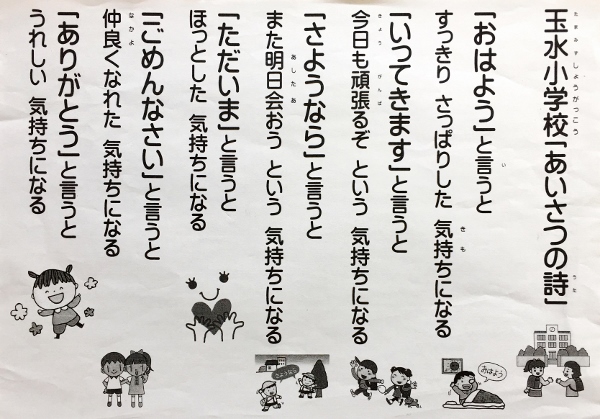 玉水小学校「あいさつの詩」
「おはよう」と言うと
すっきり さっぱりした 気持ちになる
「いってきます」と言うと
今日も頑張るぞ という 気持ちになる
「さようなら」と言うと
また明日会おう という 気持ちになる
「ただいま」と言うと
ほっとした 気持ちになる
「ごめんなさい」と言うと
仲良くなれた 気持ちになる
「ありがとう」と言うと
うれしい 気持ちになる
おはよう